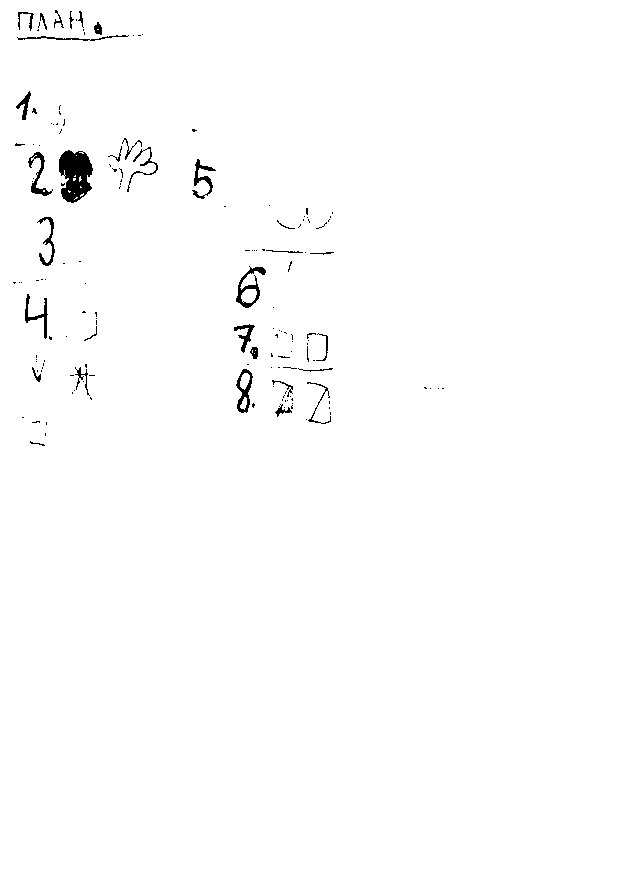 ПЛАН.
1.
2
3
4.
5
6
7.
8.